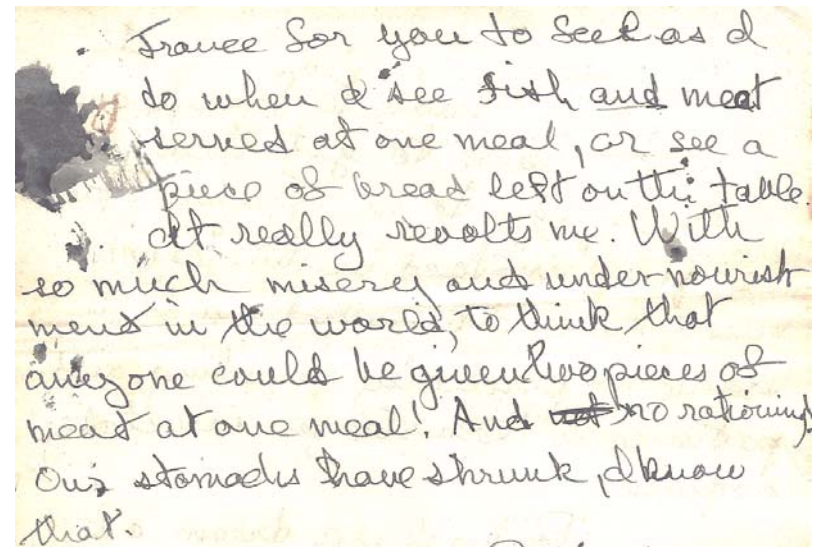 France for you to feel as I
do when I see fish and meat
served at one meal, or see a
piece of bread left on the table
It really revolts me. With
so much misery and under-nourish
ment in the world, to think that
anyone could be given two pieces of
meat at one meal! And not no rationing!
Our stomachs have shrunk, I know
that.